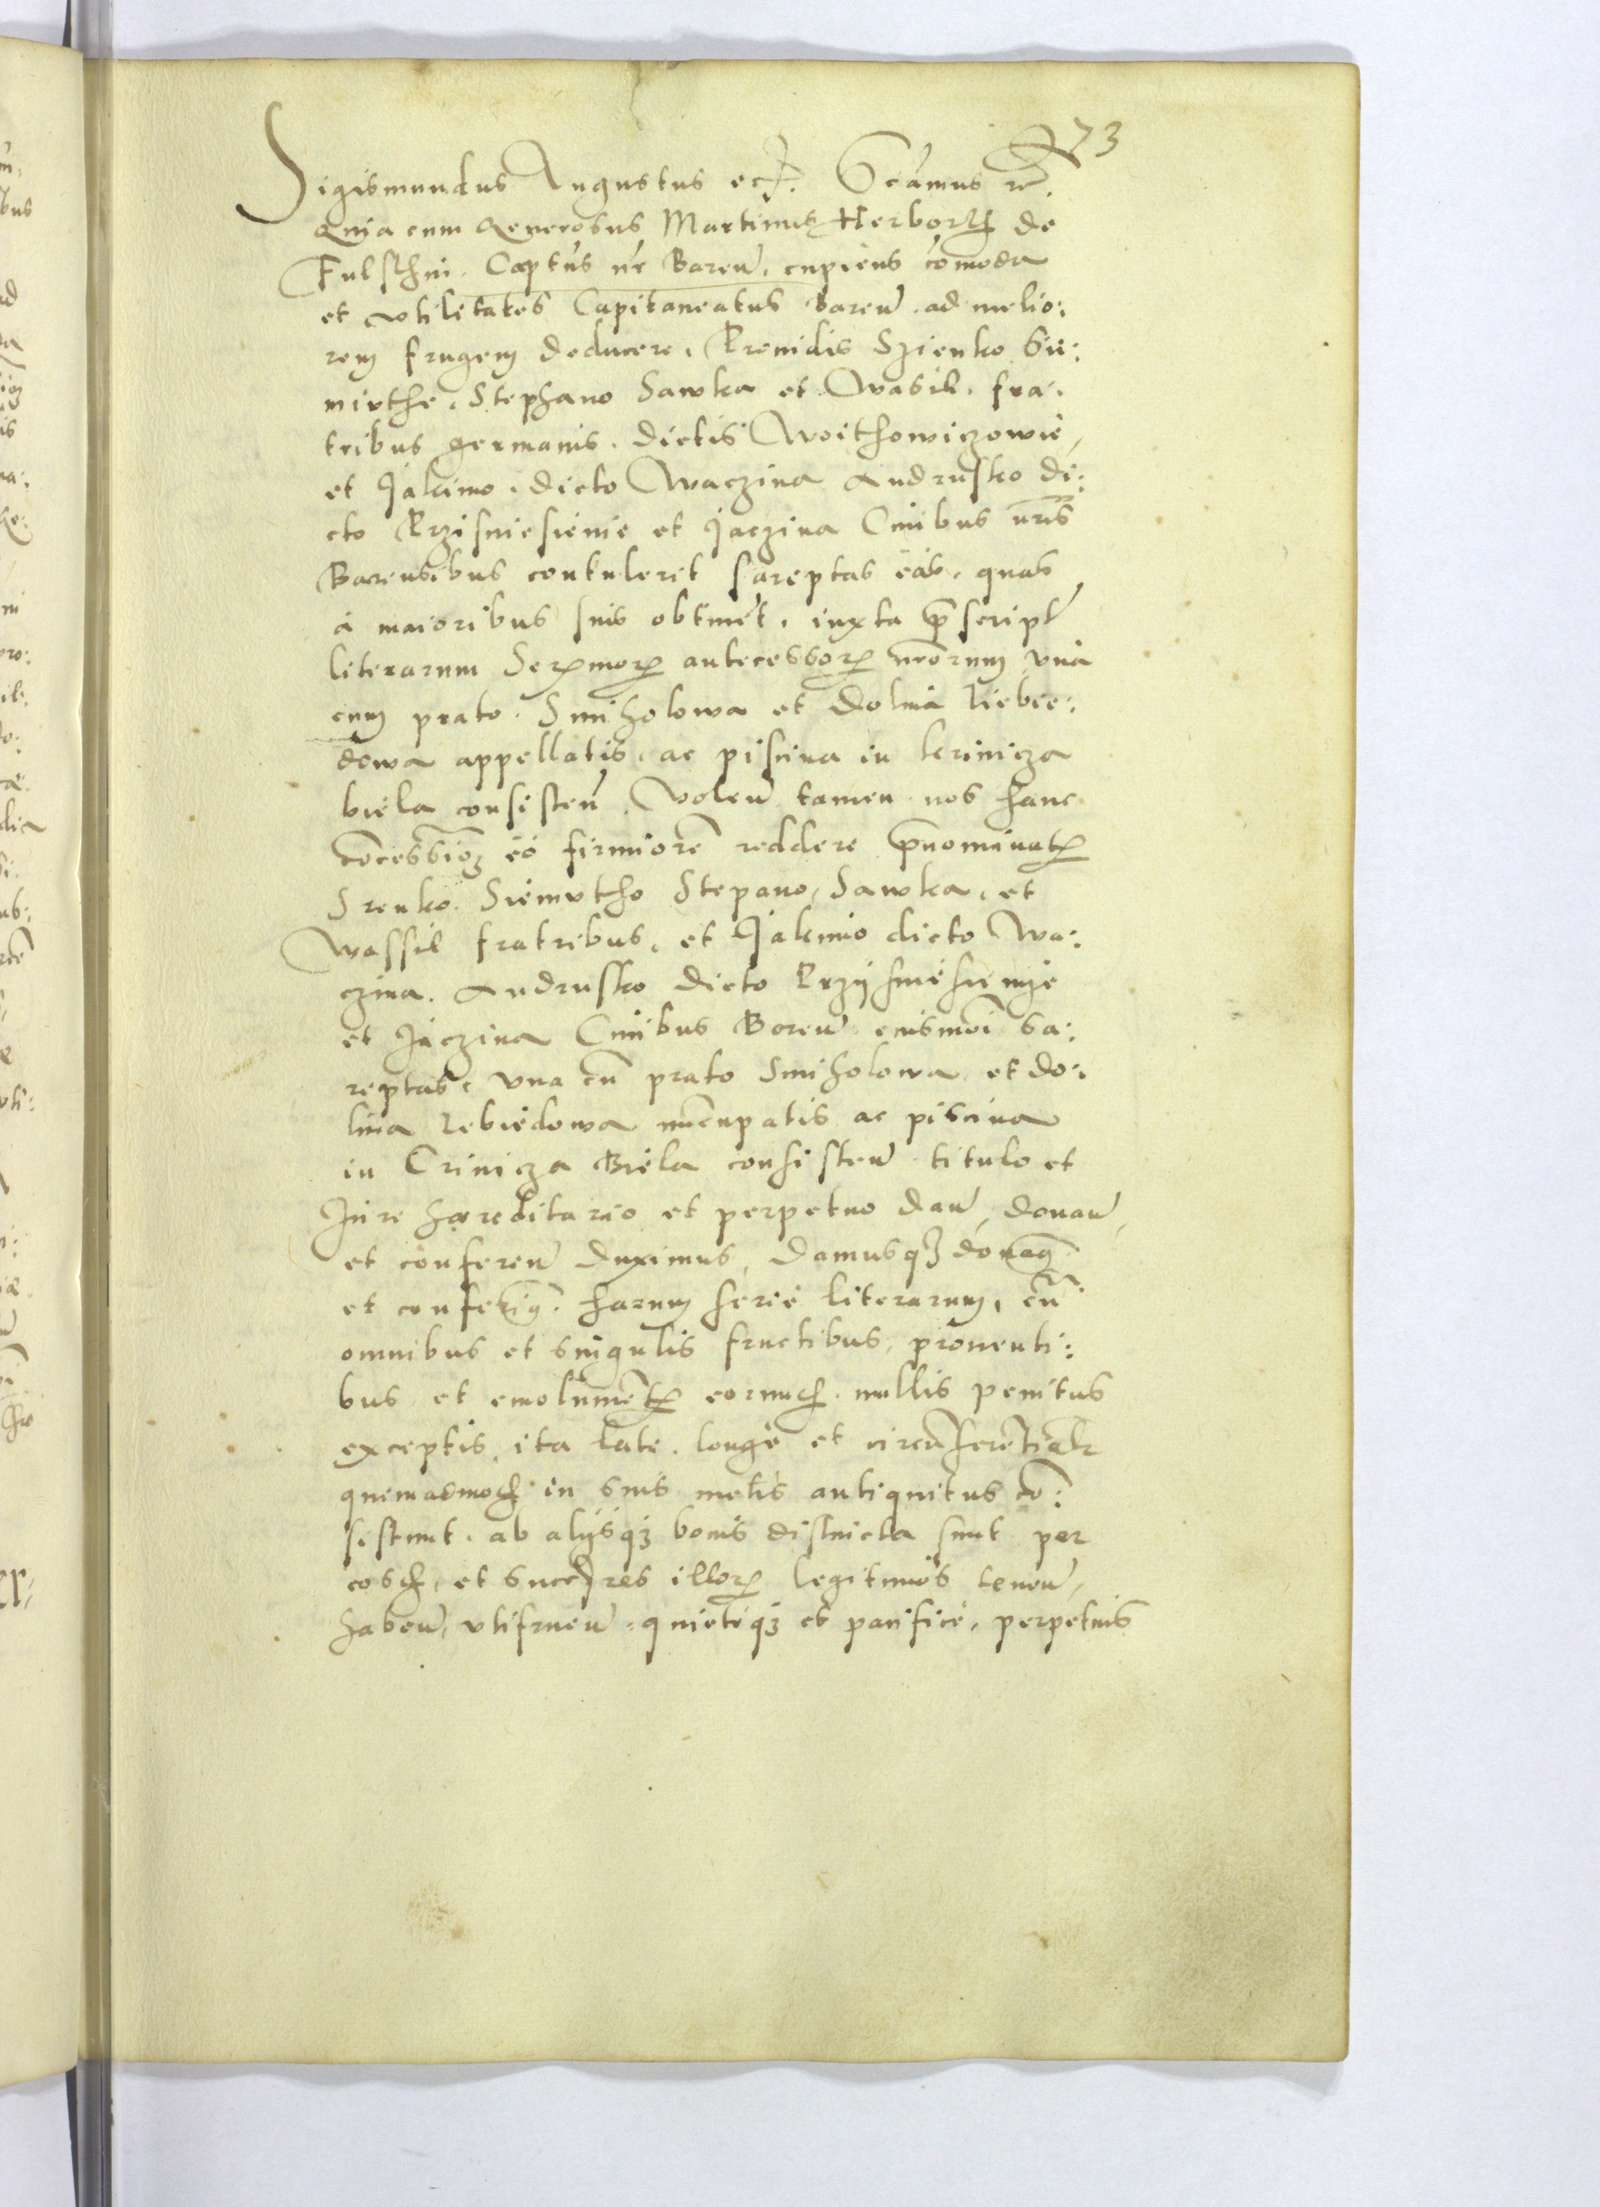 273
Sigismundus Augustus etc. Scamus re.
Quia cum Generosus Martinus Herborth de
Fulschin. Captus nr Baren. cupiens comoda
et vtilitates Capitaneatus Baren. ad melio:
rem frugem deducere. Prouidis Szienko Sie:
mirthe. Stephano Sawka et Wasil. fra:
tribus germanis. dictis Woithowiczowie,
et Jakimo. dicto Waczina Andrusko di:
cto Przisniesienie et Jaczina Ciuibus nris
Barensibus contulerit sareptas eas. quas
à maioribus suis obtinet. iuxta pscript
literarum Sermor antecessor nrorum vna
cum prato. Smiholowa et dolina Liebie:
dowa appellatis. ac piscina in krinicza
biela consisten. Volen tamen nos hanc
cocession eo firmiore reddere pnominat
Srenko. Siemvtho Stepano, Sawka, et
Wassil fratribus, et Jakimo dicto Wa:
czina. Andrusko dicto Przÿsniesienie
et Jaczina Ciuibus Boren eiusmoi sa:
reptas, vna cu prato Smiholowa et do:
lina Lebiedowa nucupatis ac piscina
in Crinicza Biela consisten titulo et
Jure haereditario et perpetuo dan, donan,
et conferen duximus, damusq donaq
et conferimq. harum serie literarum, cu
omnibus et singulis fructibus, prouenti:
bus et emolument eorund. nullis penitus
exceptis, ita late. longe et circuferential
quemadmod in suis metis antiquitus co:
sistunt. ab alÿsq bonis distincta sunt per
eosd, et succres illor legitimos tenen,
haben, vtifruen. quieteq et pacifice, perpetuis